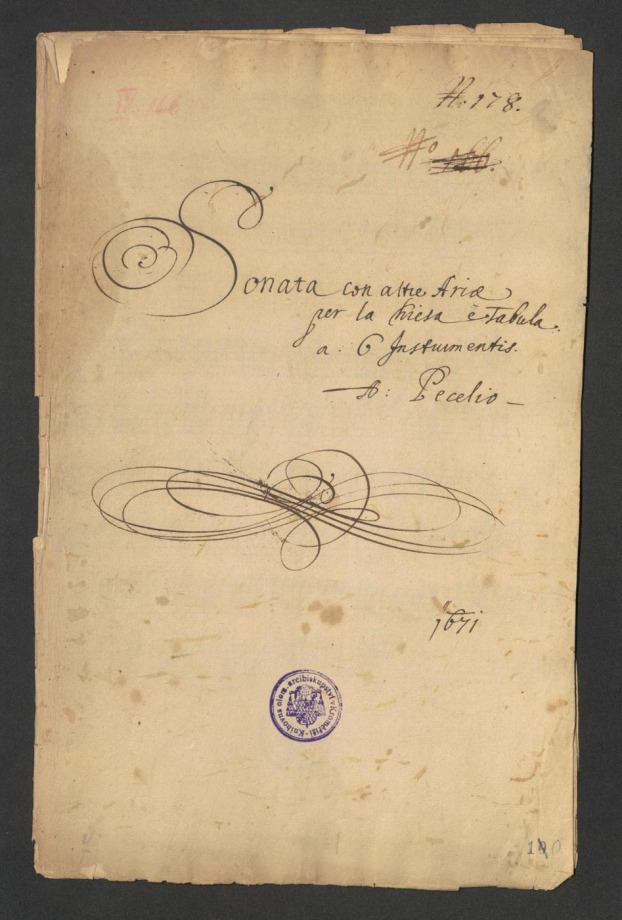 IV. 166
N. 178.
No 166.
Sonata con altre Ariæ
per la Kiesa è Tabula.
a. 6 Instrumentis.
A: Pecelio
1671
Knihovna olom. arcibiskupství v Kroměříži
180